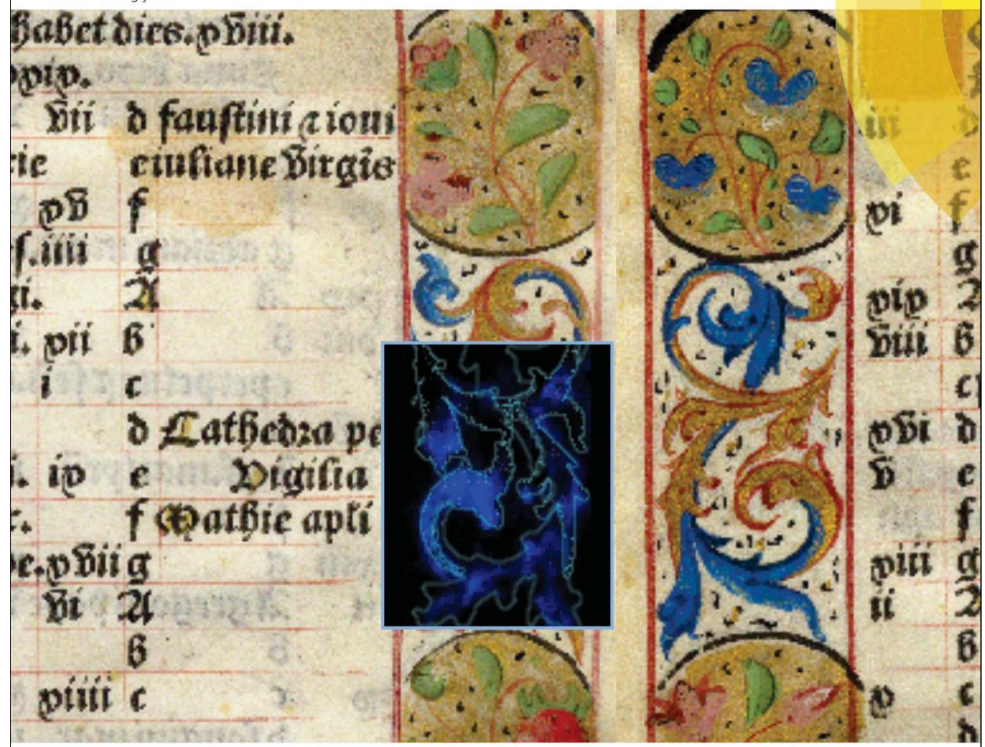 habet dies. xviii.
xix.
vii d faustini ⁊ ioui
cie e iuliane virgīs
xv f
s. iiii g
i. A
i. vii b
i c
d Cathedra pe
i. ix e Vigilia
c. f Mathie apli
e. xvii g
vi A
b
xiiii c
iii d
e
xi f
g
xix A
viii b
c
xvi d
v e
f
xiii g
ii A
b
x c
d